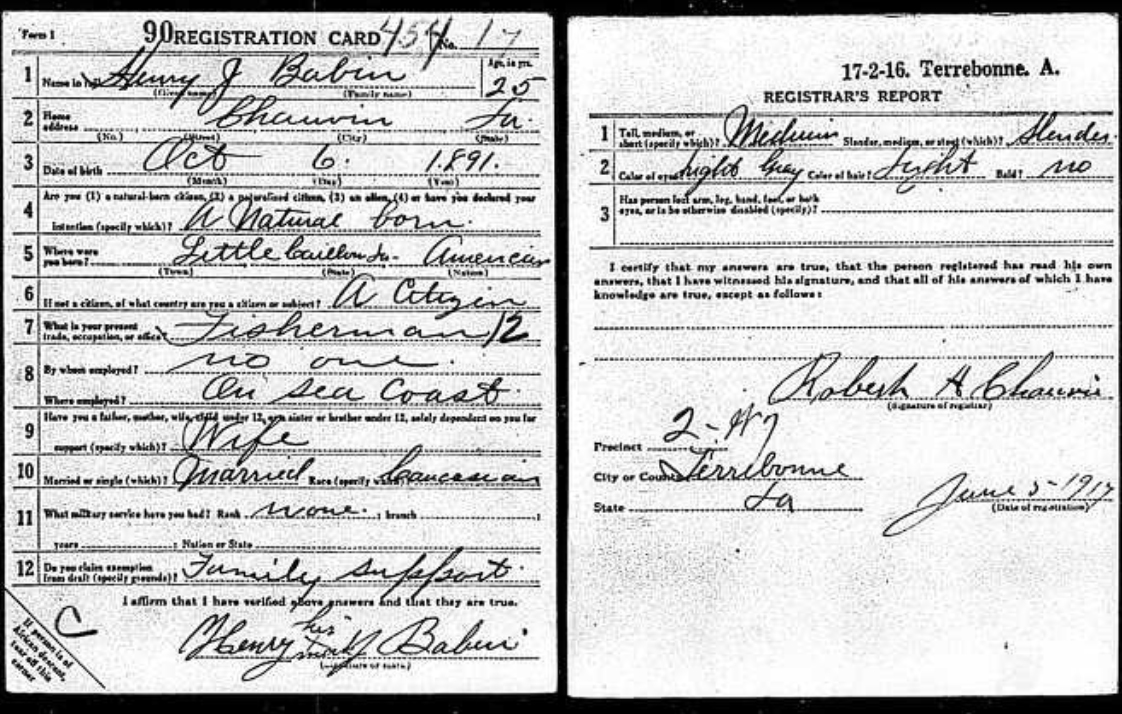 Form 1 90 REGISTRATION CARD 454 No. 17
1 Name in full Henry J Babin Age, in yrs. 25
(Given name) (Family name)
2 Home address Chauvin La
(No.) (Street) (City) (State)
3 Date of birth Oct 6. 1891.
(Month) (Day) (Year)
4 Are you (1) a natural-born citizen, (2) a naturalized citizen, (3) an alien, (4) or have you declared your
intention (specify which)? A Natural born
5 Where were you born? Little Caillou La. American
(Town) (State) (Nation)
6 If not a citizen, of what country are you a citizen or subject? A Citizin
7 What is your present trade, occupation, or office? Fisherman 12
8 By whom employed? no one.
Where employed? On sea coast.
9 Have you a father, mother, wife, child under 12, or a sister or brother under 12, solely dependent on you for
support (specify which)? Wife
10 Married or single (which)? Married Race (specify which)? Caucasian
11 What military service have you had? Rank none. ; branch ;
years ; Nation or State
12 Do you claim exemption from draft (specify grounds)? Family support.
I affirm that I have verified above answers and that they are true.
his
Henry J Babin
mark
(Signature or mark)
C
If person is of
African descent,
tear off this
corner
17-2-16. Terrebonne. A.
REGISTRAR'S REPORT
1 Tall, medium, or short (specify which)? Medium Slender, medium, or stout (which)? Slender.
2 Color of eyes? Light Gray Color of hair? Light Bald? no
3 Has person lost arm, leg, hand, foot, or both
eyes, or is he otherwise disabled (specify)?
I certify that my answers are true, that the person registered has read his own
answers, that I have witnessed his signature, and that all of his answers of which I have
knowledge are true, except as follows:
Robert H Chauvin
(Signature of registrar)
Precinct 2-
City or County Terrebonne
State La June 5-1917
(Date of registration)